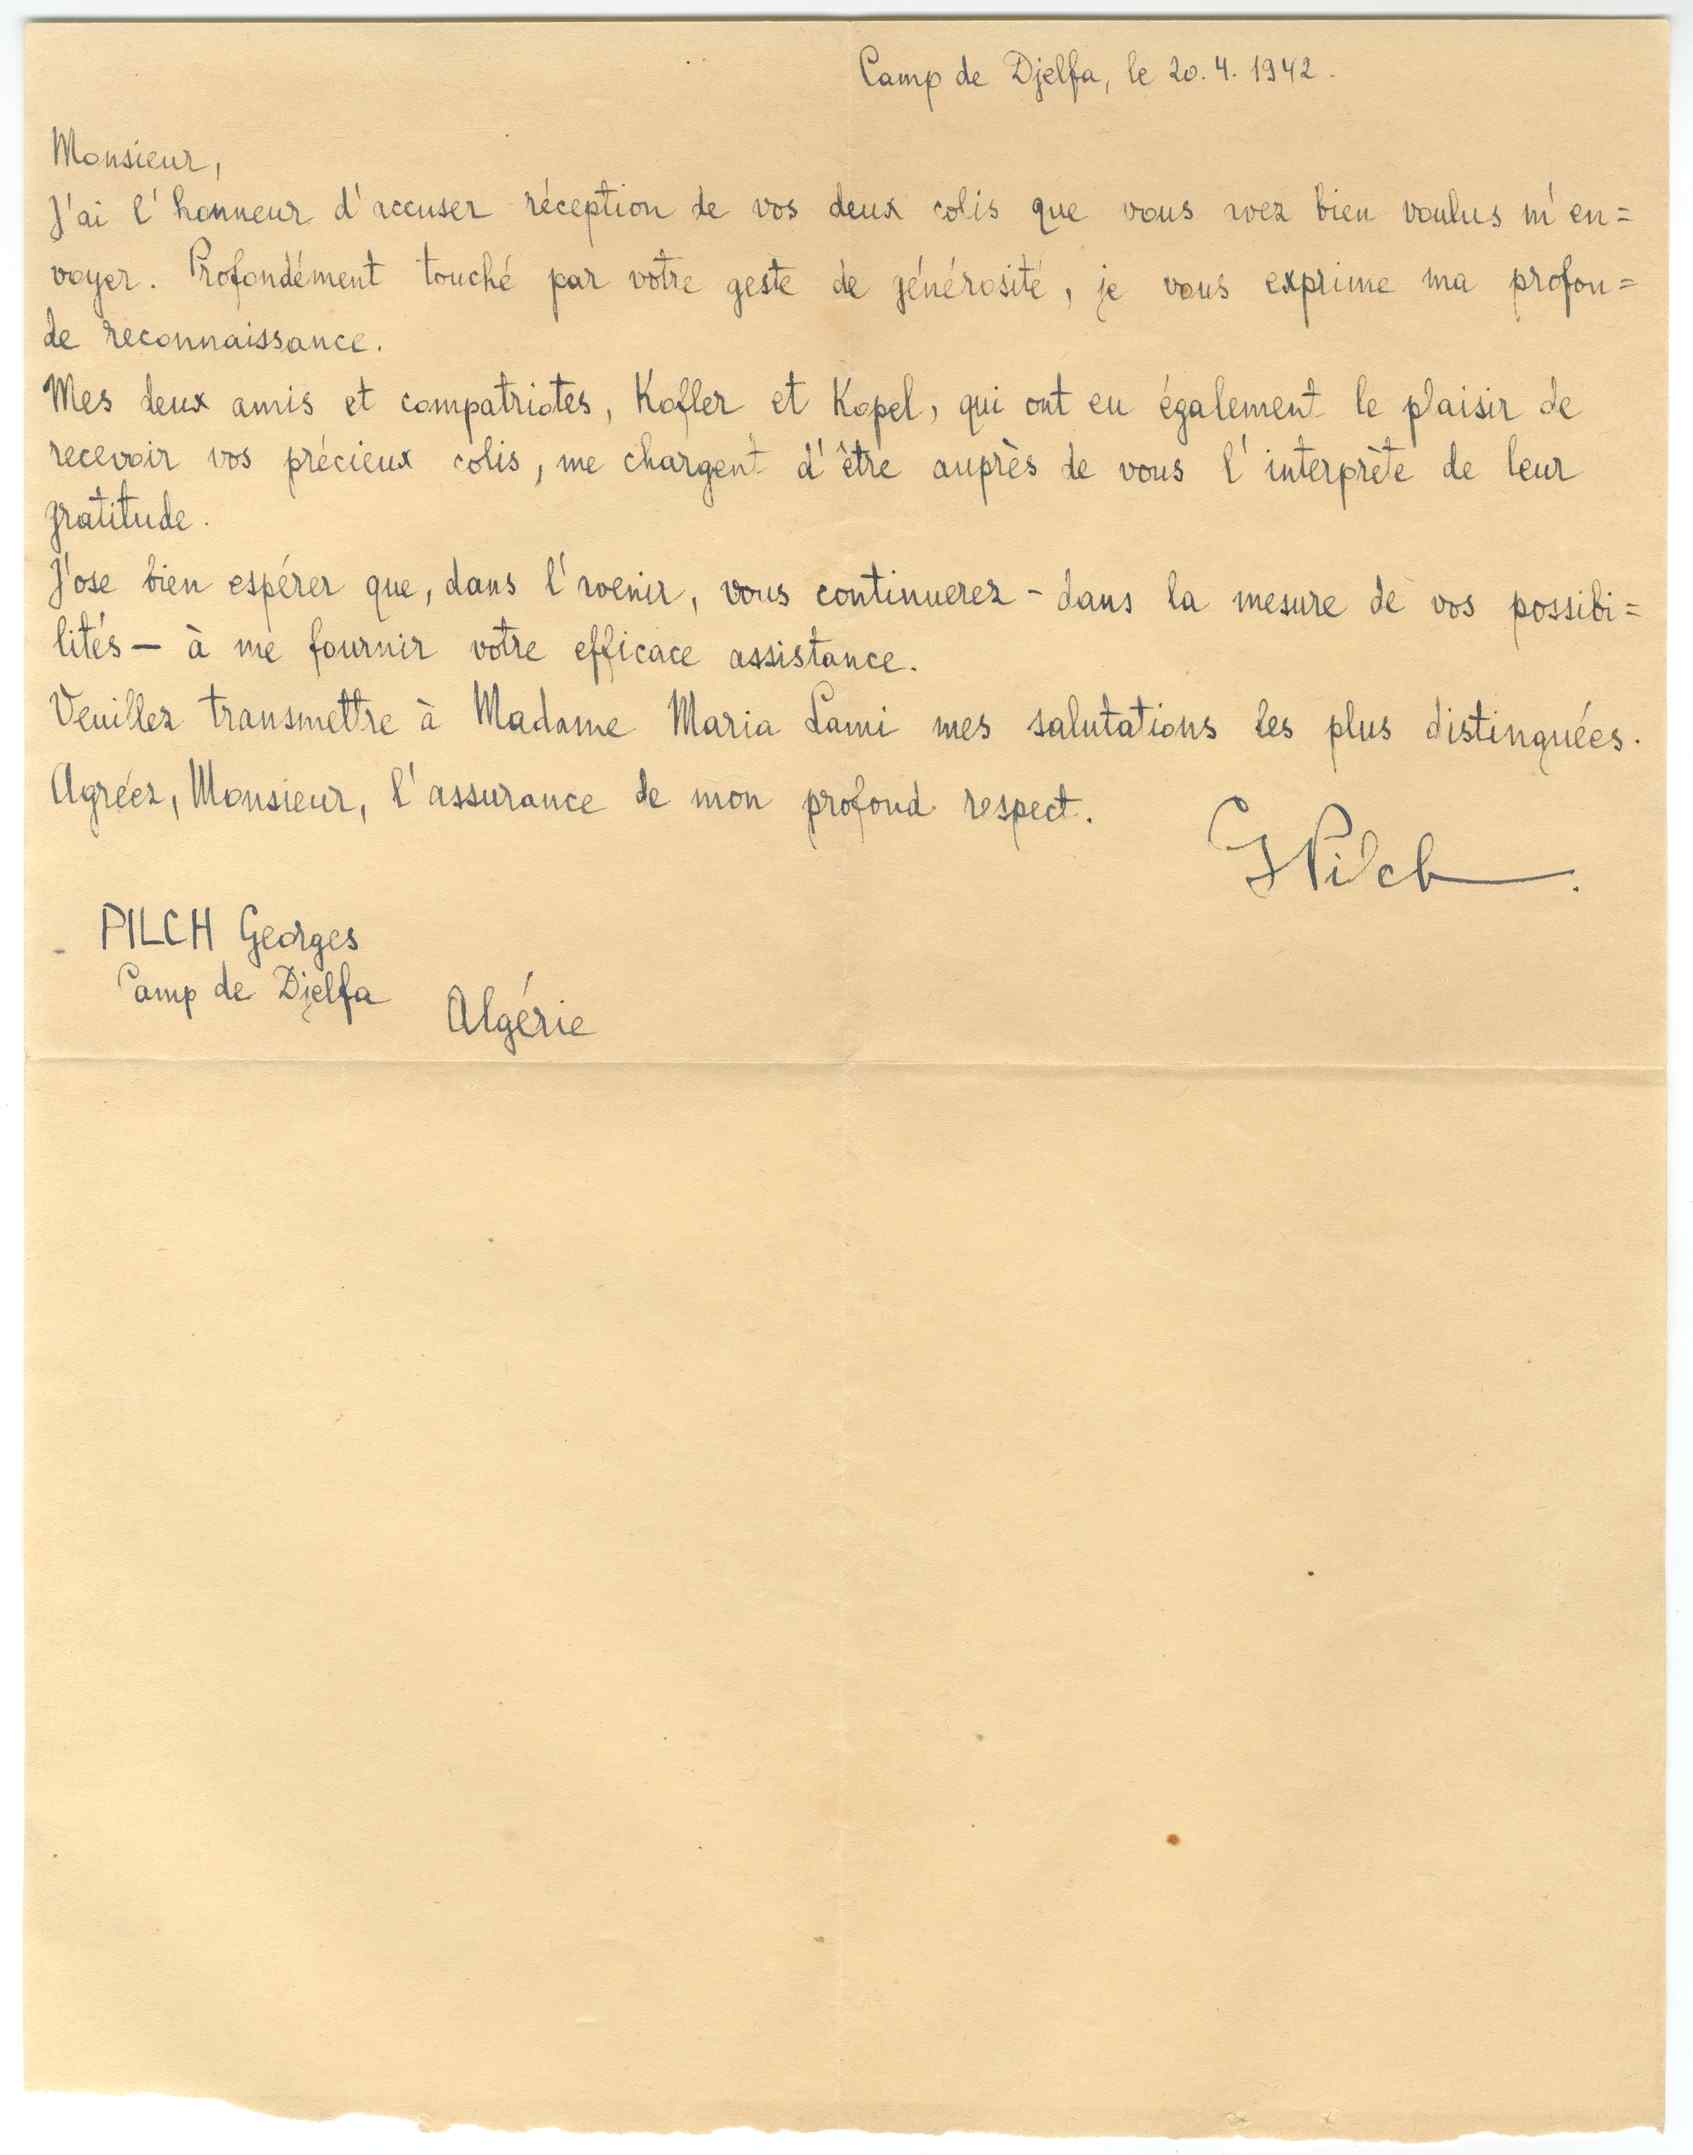 Camp de Djelfa, le 20. 4. 1942.
Monsieur,
J'ai l'honneur d'accuser réception de vos deux colis que vous avez bien voulus m'en=
voyer. Profondément touché par votre geste de générosité, je vous exprime ma profon=
de reconnaissance.
Mes deux amis et compatriotes, Kofler et Kopel, qui ont eu également le plaisir de
recevoir vos précieux colis, me chargent d'être auprès de vous l'interprète de leur
gratitude.
J'ose bien espérer que, dans l'avenir, vous continuerez - dans la mesure de vos possibi=
lités - à me fournir votre efficace assistance.
Veuillez transmettre à Madame Maria Lami mes salutations les plus distinguées.
Agréez, Monsieur, l'assurance de mon profond respect.
GPilch.
PILCH Georges
Camp de Djelfa
Algérie